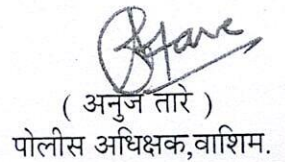 ( अनुज तारे )
पोलीस अधिक्षक,वाशिम.